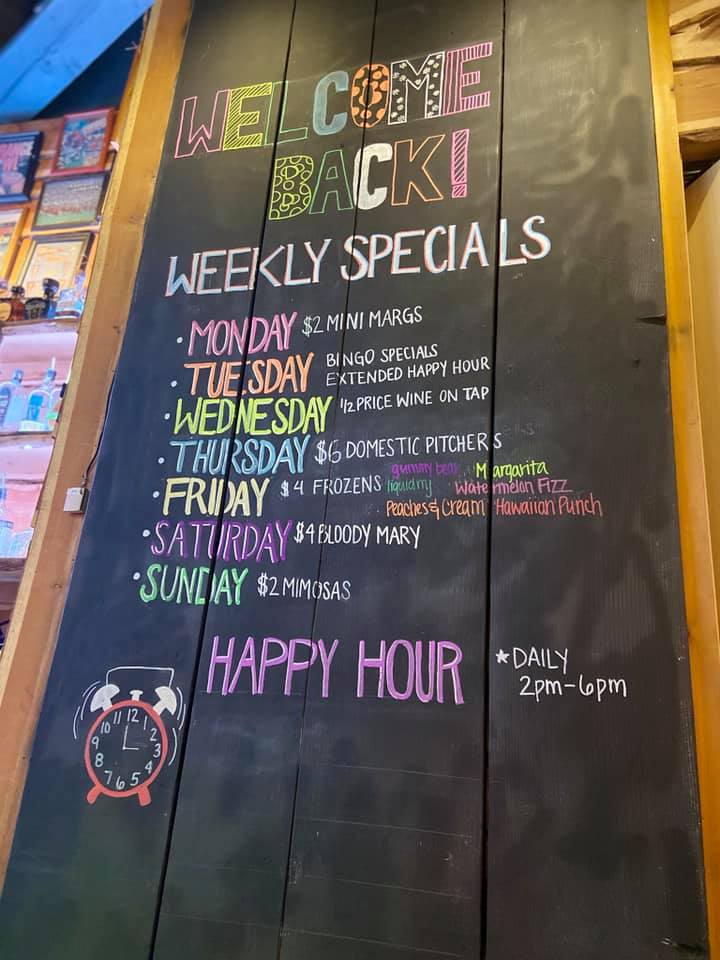 WELCOME
BACK!
WEEKLY SPECIALS
• MONDAY $2 MINI MARGS
• TUESDAY BINGO SPECIALS
EXTENDED HAPPY HOUR
• WEDNESDAY 1/2 PRICE WINE ON TAP
• THURSDAY $6 DOMESTIC PITCHERS
gummy bear Margarita
• FRIDAY $4 FROZENS liquid mj Watermelon Fizz
Peaches & Cream Hawaiian Punch
• SATURDAY $4 BLOODY MARY
• SUNDAY $2 MIMOSAS
HAPPY HOUR ★DAILY
2pm-6pm
11 12 1
10 2
9 3
8 4
7 6 5